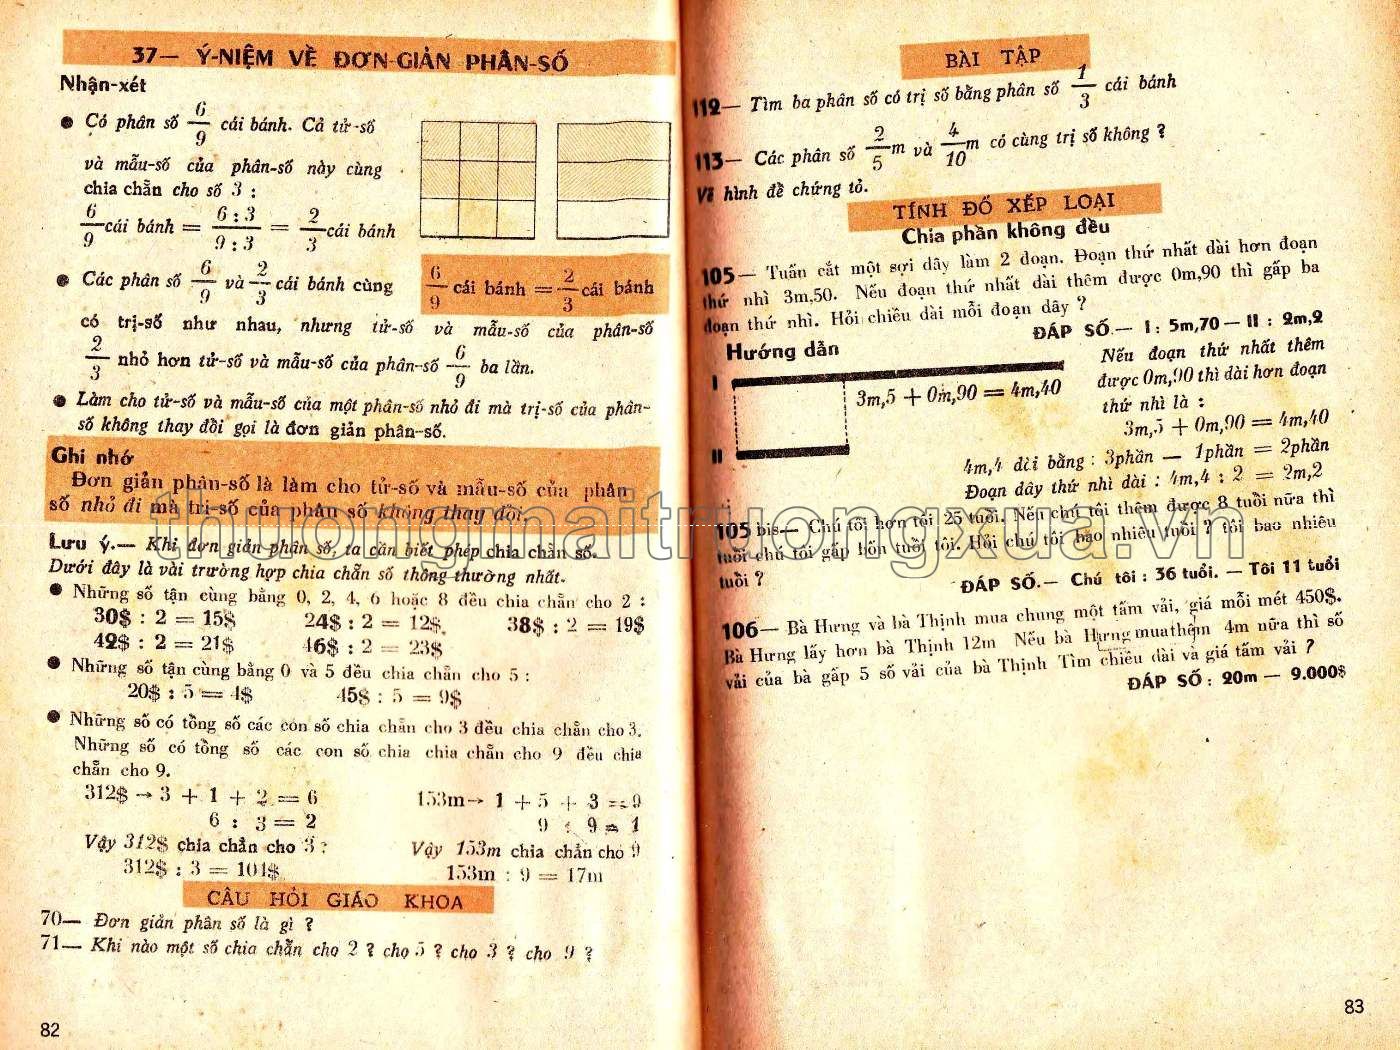 37— Ý-NIỆM VỀ ĐƠN-GIẢN PHÂN-SỐ
Nhận-xét
● Có phân số 6/9 cái bánh. Cả tử-số
và mẫu-số của phân-số này cùng
chia chẵn cho số 3 :
6/9 cái bánh = 6 : 3 / 9 : 3 = 2/3 cái bánh
● Các phân số 6/9 và 2/3 cái bánh cùng
6/9 cái bánh = 2/3 cái bánh
có trị-số như nhau, nhưng tử-số và mẫu-số của phân-số
2/3 nhỏ hơn tử-số và mẫu-số của phân-số 6/9 ba lần.
● Làm cho tử-số và mẫu-số của một phân-số nhỏ đi mà trị-số của phân-
số không thay đổi gọi là đơn giản phân-số.
Ghi nhớ
Đơn giản phân-số là làm cho tử-số và mẫu-số của phân
số nhỏ đi mà trị-số của phân số không thay đổi.
Lưu ý.— Khi đơn giản phân số, ta cần biết phép chia chẵn số.
Dưới đây là vài trường hợp chia chẵn số thông-thường nhất.
● Những số tận cùng bằng 0, 2, 4, 6 hoặc 8 đều chia chẵn cho 2 :
30$ : 2 = 15$ 24$ : 2 = 12$. 38$ : 2 = 19$
42$ : 2 = 21$ 46$ : 2 = 23$
● Những số tận cùng bằng 0 và 5 đều chia chẵn cho 5 :
20$ : 5 = 4$ 45$ : 5 = 9$
● Những số có tổng số các con số chia chẵn cho 3 đều chia chẵn cho 3.
Những số có tổng số các con số chia chia chẵn cho 9 đều chia
chẵn cho 9.
312$ → 3 + 1 + 2 = 6 153m → 1 + 5 + 3 = 9
6 : 3 = 2 9 : 9 = 1
Vậy 312$ chia chẵn cho 3 : Vậy 153m chia chẵn cho 9
312$ : 3 = 104$ 153m : 9 = 17m
CÂU HỎI GIÁO KHOA
70— Đơn giản phân số là gì ?
71— Khi nào một số chia chẵn cho 2 ? cho 5 ? cho 3 ? cho 9 ?
82
BÀI TẬP
112— Tìm ba phân số có trị số bằng phân số 1/3 cái bánh
113— Các phân số 2/5 m và 4/10 m có cùng trị số không ?
Vẽ hình để chứng tỏ.
TÍNH ĐỐ XẾP LOẠI
Chia phần không đều
105— Tuấn cắt một sợi dây làm 2 đoạn. Đoạn thứ nhất dài hơn đoạn
thứ nhì 3m,50. Nếu đoạn thứ nhất dài thêm được 0m,90 thì gấp ba
đoạn thứ nhì. Hỏi chiều dài mỗi đoạn dây ?
ĐÁP SỐ.— I : 5m,70 — II : 2m,2
Hướng dẫn
I
3m,5 + 0m,90 = 4m,40
II
Nếu đoạn thứ nhất thêm
được 0m,90 thì dài hơn đoạn
thứ nhì là :
3m,5 + 0m,90 = 4m,40
4m,4 dài bằng : 3phần — 1phần = 2phần
Đoạn dây thứ nhì dài : 4m,4 : 2 = 2m,2
105 bis— Chú tôi hơn tôi 25 tuổi. Nếu chú tôi thêm được 8 tuổi nữa thì
tuổi chú tôi gấp bốn tuổi tôi. Hỏi chú tôi bao nhiêu tuổi ? tôi bao nhiêu
tuổi ?
ĐÁP SỐ.— Chú tôi : 36 tuổi. — Tôi 11 tuổi
106— Bà Hưng và bà Thịnh mua chung một tấm vải, giá mỗi mét 450$.
Bà Hưng lấy hơn bà Thịnh 12m Nếu bà Hưng mua thêm 4m nữa thì số
vải của bà gấp 5 số vải của bà Thịnh Tìm chiều dài và giá tấm vải ?
ĐÁP SỐ : 20m — 9.000$
83
thuongmaitruongxua.vn